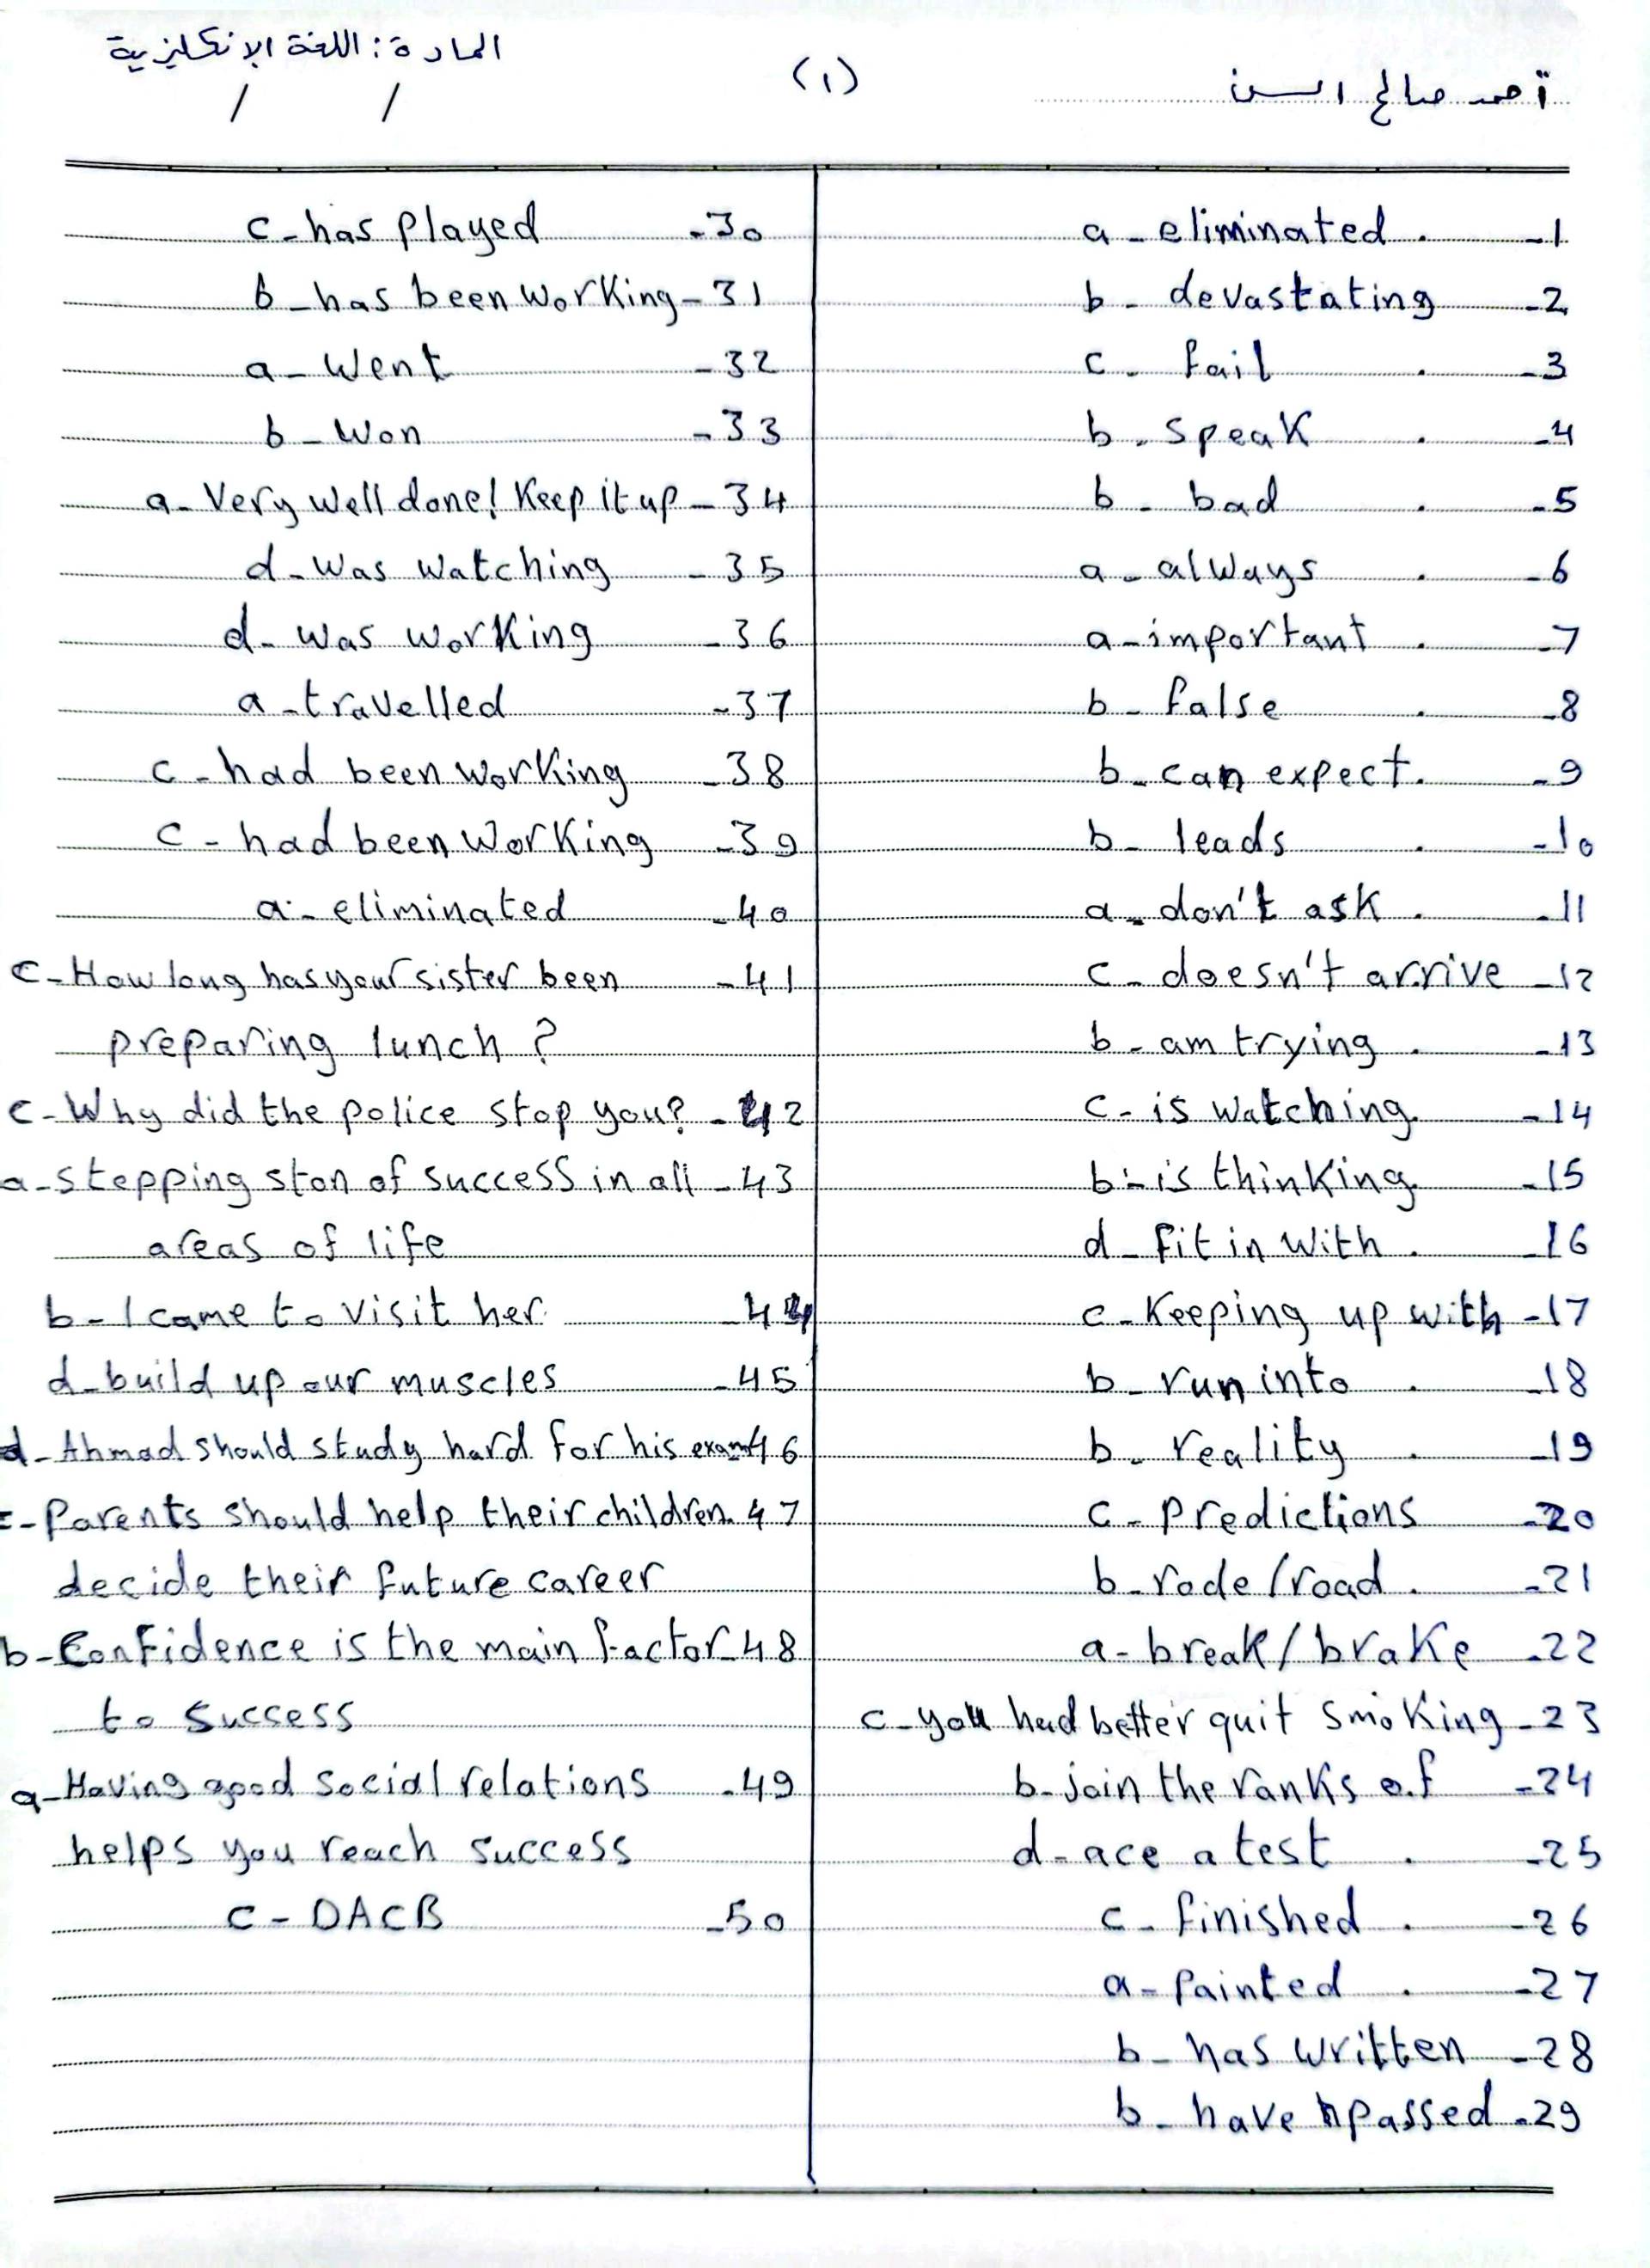 المادة: اللغة الإنكليزية
/ /
(١)
أحمد صالح
a - eliminated . -1
b - devastating -2
c - fail . -3
b - speak . -4
b - bad . -5
a - always . -6
a - important . -7
b - false . -8
b - can expect. -9
b - leads . -10
a - don't ask . -11
c - doesn't arrive -12
b - am trying . -13
c - is watching. -14
b - is thinking. -15
d - fit in with . -16
c - keeping up with -17
b - run into . -18
b - reality . -19
c - predictions -20
b - rode/road . -21
a - break/brake -22
c - you had better quit smoking -23
b - join the ranks of -24
d - ace a test . -25
c - finished . -26
a - painted . -27
b - has written -28
b - have passed -29
c - has played -30
b - has been working - 31
a - went -32
b - won -33
a - Very well done! Keep it up - 34
d - was watching -35
d - was working -36
a - travelled -37
c - had been working -38
c - had been working -39
a - eliminated -40
c - How long has your sister been -41
preparing lunch ?
c - Why did the police stop you? -42
a - stepping ston of success in all -43
areas of life
b - I came to visit her. -44
d - build up our muscles -45
d - Ahmad should study hard for his exam -46
c - Parents should help their children. 47
decide their future career
b - Confidence is the main factor -48
to success
a - Having good social relations -49
helps you reach success
c - DACB -50